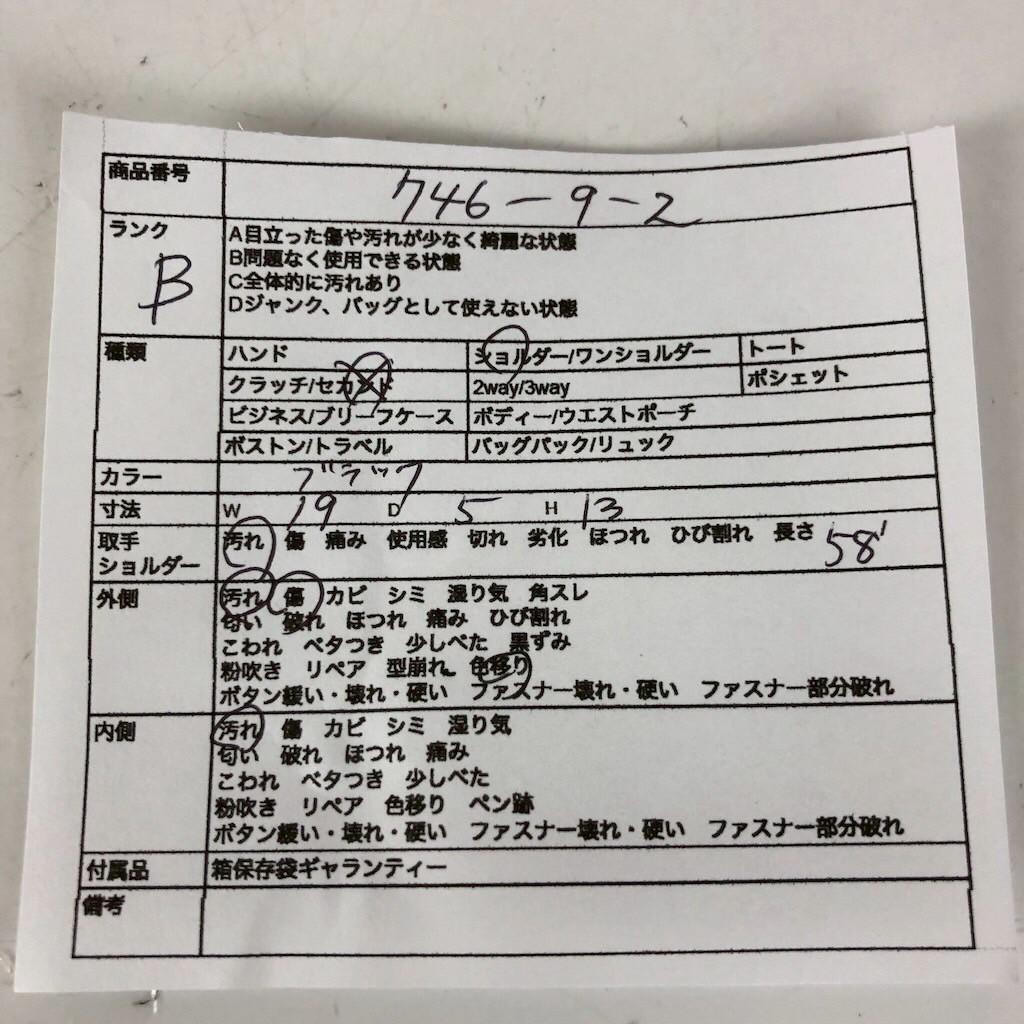 商品番号 746-9-2
ランク B
A目立った傷や汚れが少なく綺麗な状態
B問題なく使用できる状態
C全体的に汚れあり
Dジャンク、バッグとして使えない状態
種類 ハンド ショルダー/ワンショルダー トート
クラッチ/セカンド 2way/3way ポシェット
ビジネス/ブリーフケース ボディー/ウエストポーチ
ボストン/トラベル バッグパック/リュック
カラー ブラック
寸法 W 19 D 5 H 13
取手 汚れ 傷 痛み 使用感 切れ 劣化 ほつれ ひび割れ 長さ 58
ショルダー
外側 汚れ 傷 カビ シミ 湿り気 角スレ
匂い 破れ ほつれ 痛み ひび割れ
こわれ ベタつき 少しべた 黒ずみ
粉吹き リペア 型崩れ 色移り
ボタン緩い・壊れ・硬い ファスナー壊れ・硬い ファスナー部分破れ
内側 汚れ 傷 カビ シミ 湿り気
匂い 破れ ほつれ 痛み
こわれ ベタつき 少しべた
粉吹き リペア 色移り ペン跡
ボタン緩い・壊れ・硬い ファスナー壊れ・硬い ファスナー部分破れ
付属品 箱保存袋ギャランティー
備考